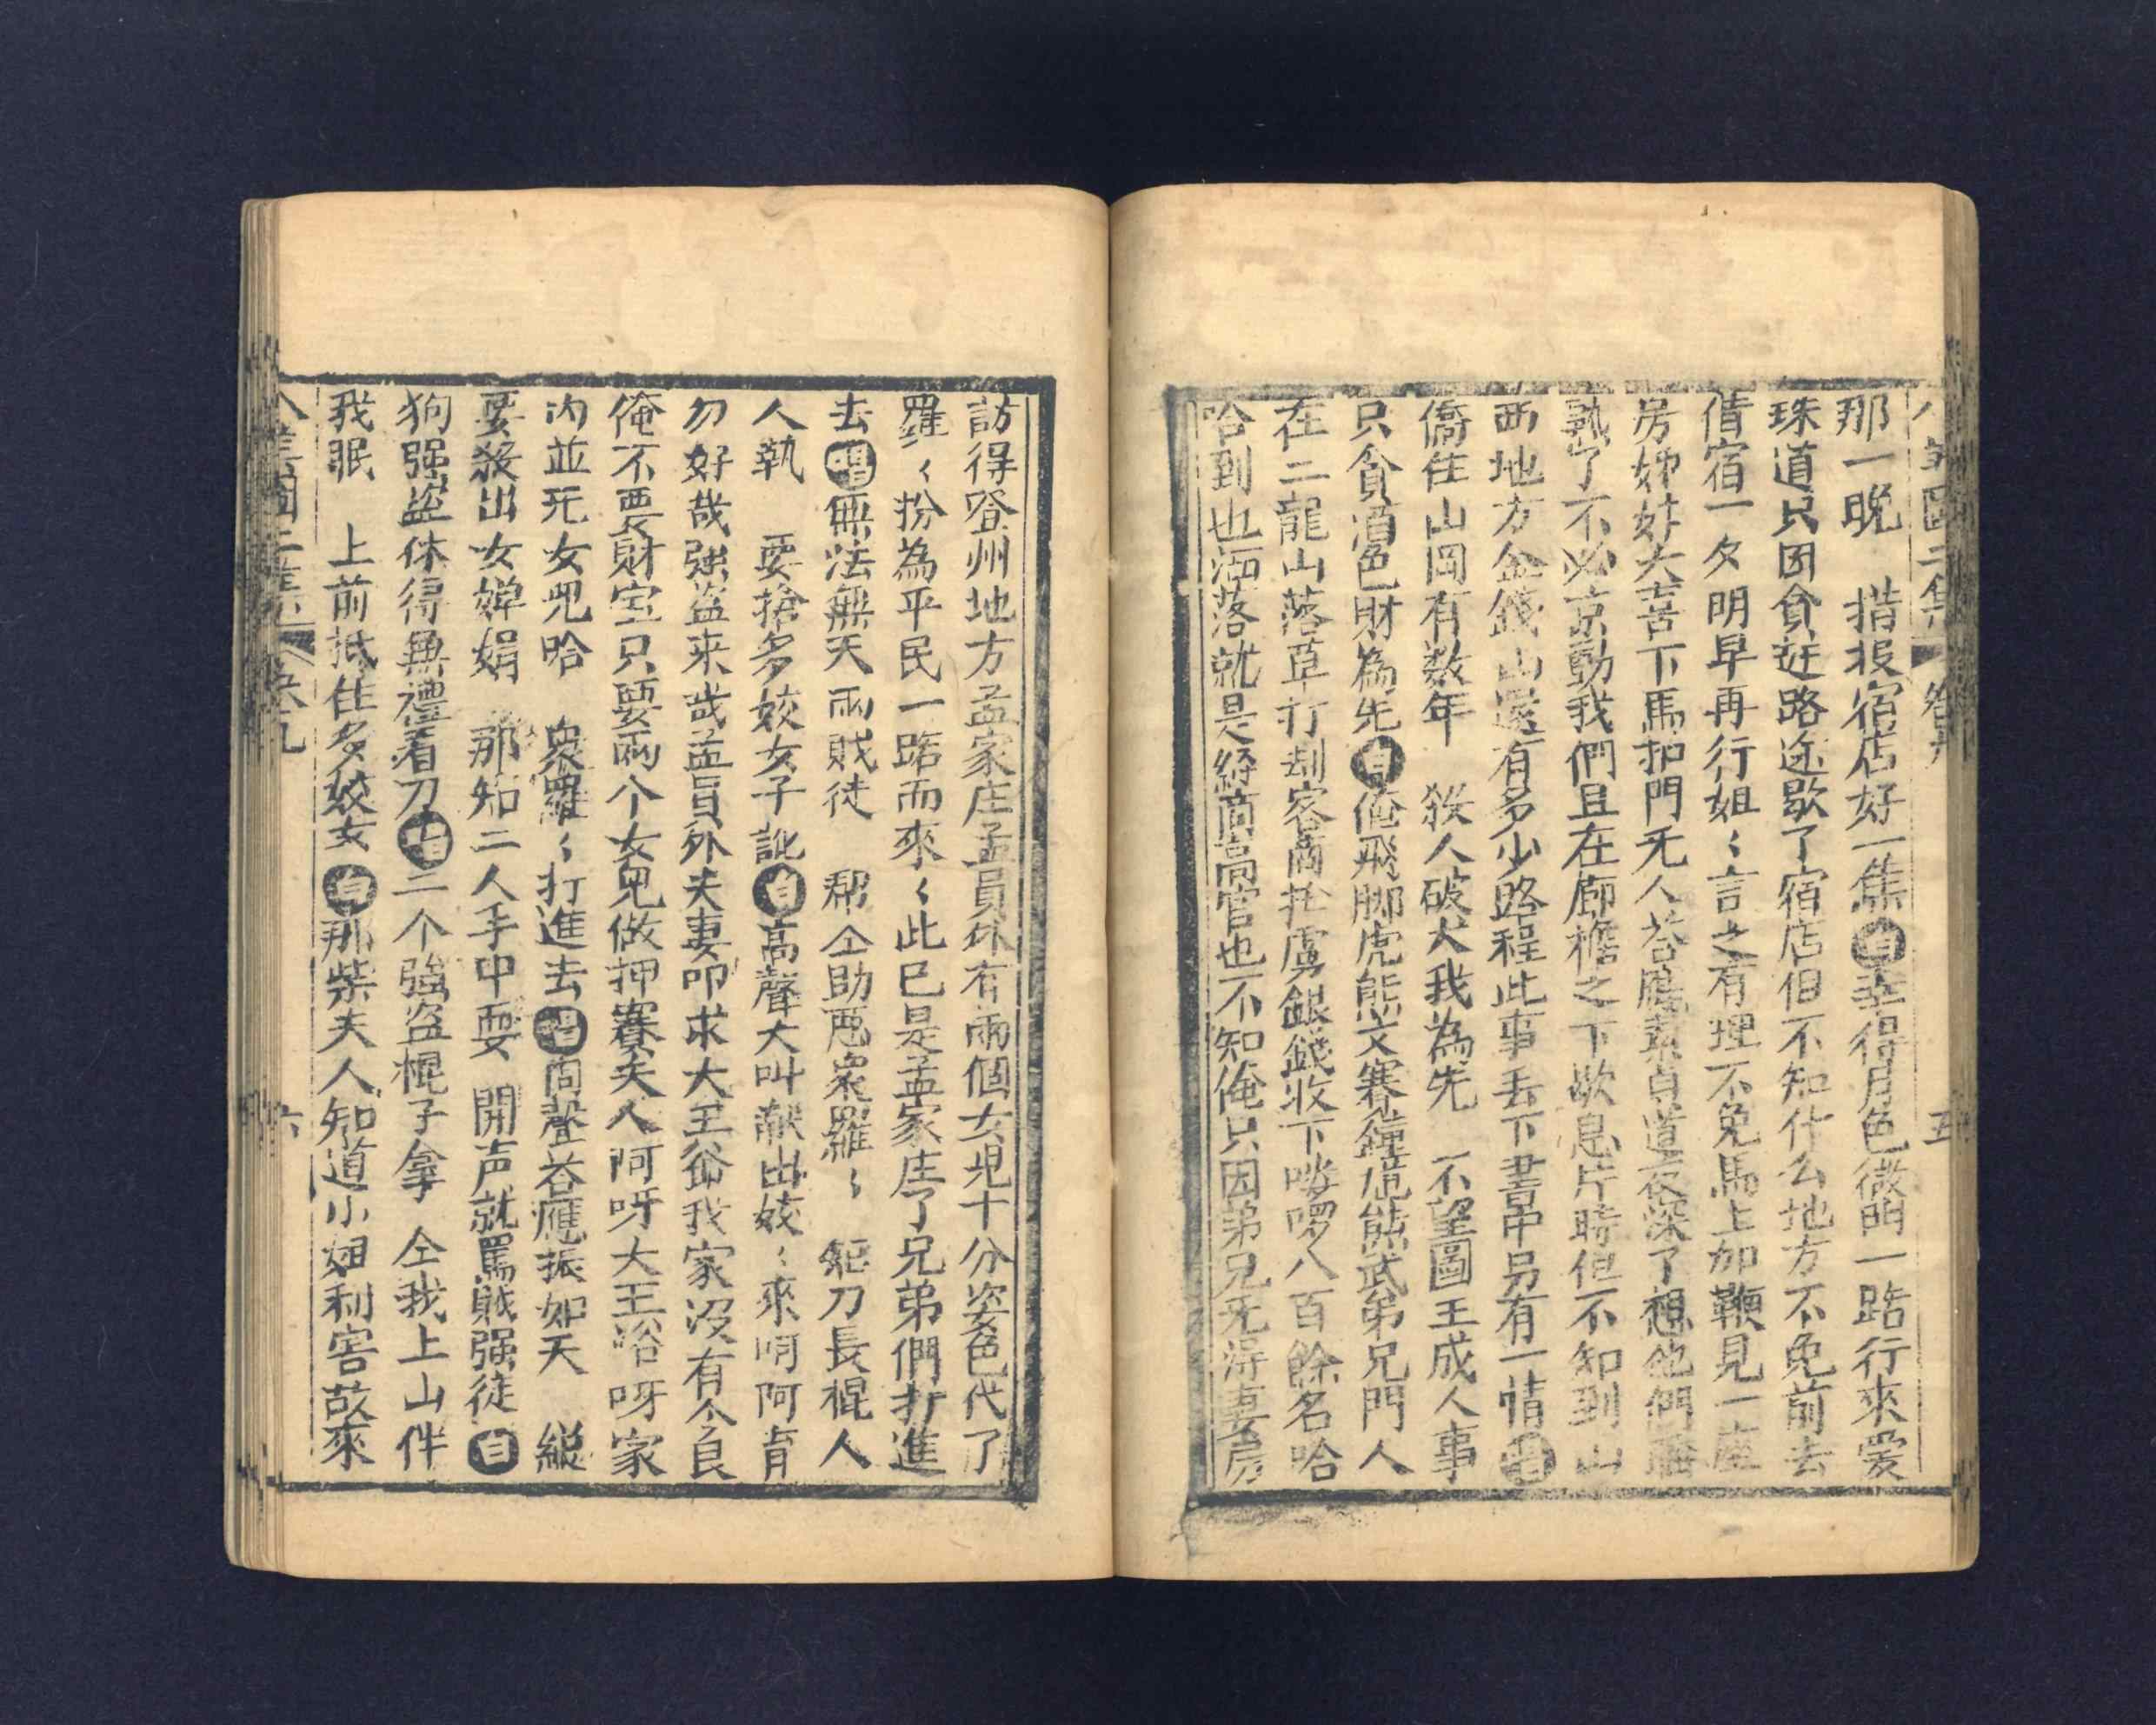 那一晚　措投宿店好一焦白幸得月色微明一路行來爱
珠道只因貪赶路途歇了宿店但不知什么地方不免前去
借宿一夕明早再行姐〻言之有理不免馬上加鞭見一座
房姊好大苦下馬扣門旡人荅應素貞道夜深了想他們睡
熟了不必京動我們且在廊檐之下歇息片時但不知到山
西地方金錢山還有多少路程此事丢下書中另有一情唱
僑住山岡有数年　殺人破犬我為先　不望圖王成人事
只貪酒色財為先白俺飛脚虎熊文賽鐘馗熊武弟兄門人
在二龍山落草打刼客商掳虜銀錢收下嘍啰八百餘名哈
哈到也洒落就是經商高官也不知俺只因弟兄旡得妻房
五
訪得登州地方孟家庄孟員外有兩個女児十分姿色代了
羅〻扮為平民一路而來〻此已是孟家庄了兄弟們打進
去唱無法無天兩賊徒　帮仝助恶衆羅〻　短刀長棍人
人執　要搶多姣女子訛白高聲大叫献出姣〻來呵阿肯
勿好哉強盗來哉孟員外夫妻叩求大王爺我家没有金艮
俺不要財宝只要兩个女兒做押寨夫人阿呀大王爷呀家
内並旡女兒哈　衆羅〻打進去唱同聲荅應振如天　縱
要殺出女婵娟　那知二人手中耍　開声就罵賊强徒白
狗强盗休得無禮看刀唱二个強盗棍子拿　仝我上山伴
我眠　上前抵住多姣女白那柴夫人知道小姐利害故來
六